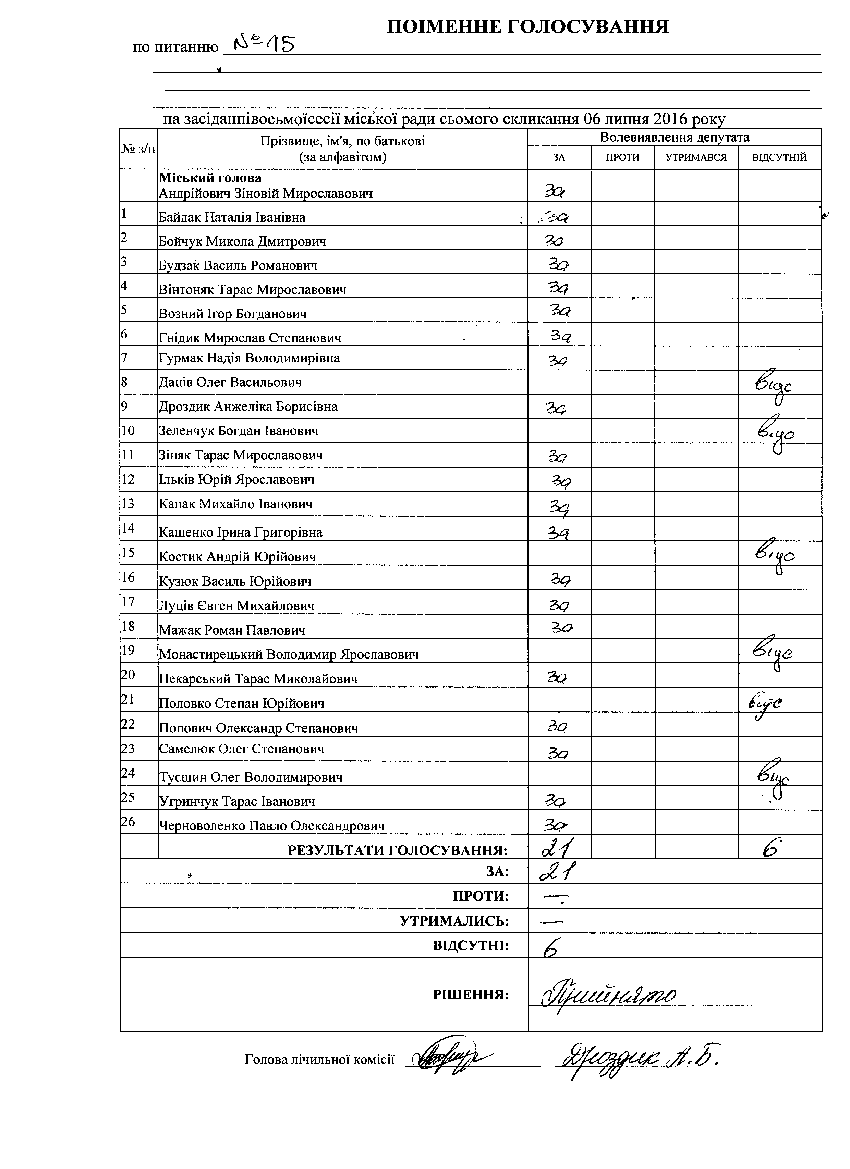 ПОІМЕННЕ ГОЛОСУВАННЯ
по питанню №15
на засіданнівосьмоїсесії міської ради сьомого скликання 06 липня 2016 року
№ з/п Прізвище, ім'я, по батькові (за алфавітом) Волевиявлення депутата
ЗА ПРОТИ УТРИМАВСЯ ВІДСУТНІЙ
Міський голова
Андрійович Зіновій Мирославович за
1 Байдак Наталія Іванівна за
2 Бойчук Микола Дмитрович за
3 Будзак Василь Романович за
4 Вінтоняк Тарас Мирославович за
5 Возний Ігор Богданович за
6 Гнідик Мирослав Степанович за
7 Гурмак Надія Володимирівна за
8 Даців Олег Васильович відс
9 Дроздик Анжеліка Борисівна за
10 Зеленчук Богдан Іванович відс
11 Зіняк Тарас Мирославович за
12 Ільків Юрій Ярославович за
13 Капак Михайло Іванович за
14 Кащенко Ірина Григорівна за
15 Костик Андрій Юрійович відс
16 Кузюк Василь Юрійович за
17 Луців Євген Михайлович за
18 Мажак Роман Павлович за
19 Монастирецький Володимир Ярославович відс
20 Пекарський Тарас Миколайович за
21 Половко Степан Юрійович відс
22 Попович Олександр Степанович за
23 Самелюк Олег Степанович за
24 Тусшин Олег Володимирович відс
25 Угринчук Тарас Іванович за
26 Черноволенко Павло Олександрович за
РЕЗУЛЬТАТИ ГОЛОСУВАННЯ: 21 6
ЗА: 21
ПРОТИ: —
УТРИМАЛИСЬ: —
ВІДСУТНІ: 6
РІШЕННЯ: Прийнято
Голова лічильної комісії Дроздик А.Б.